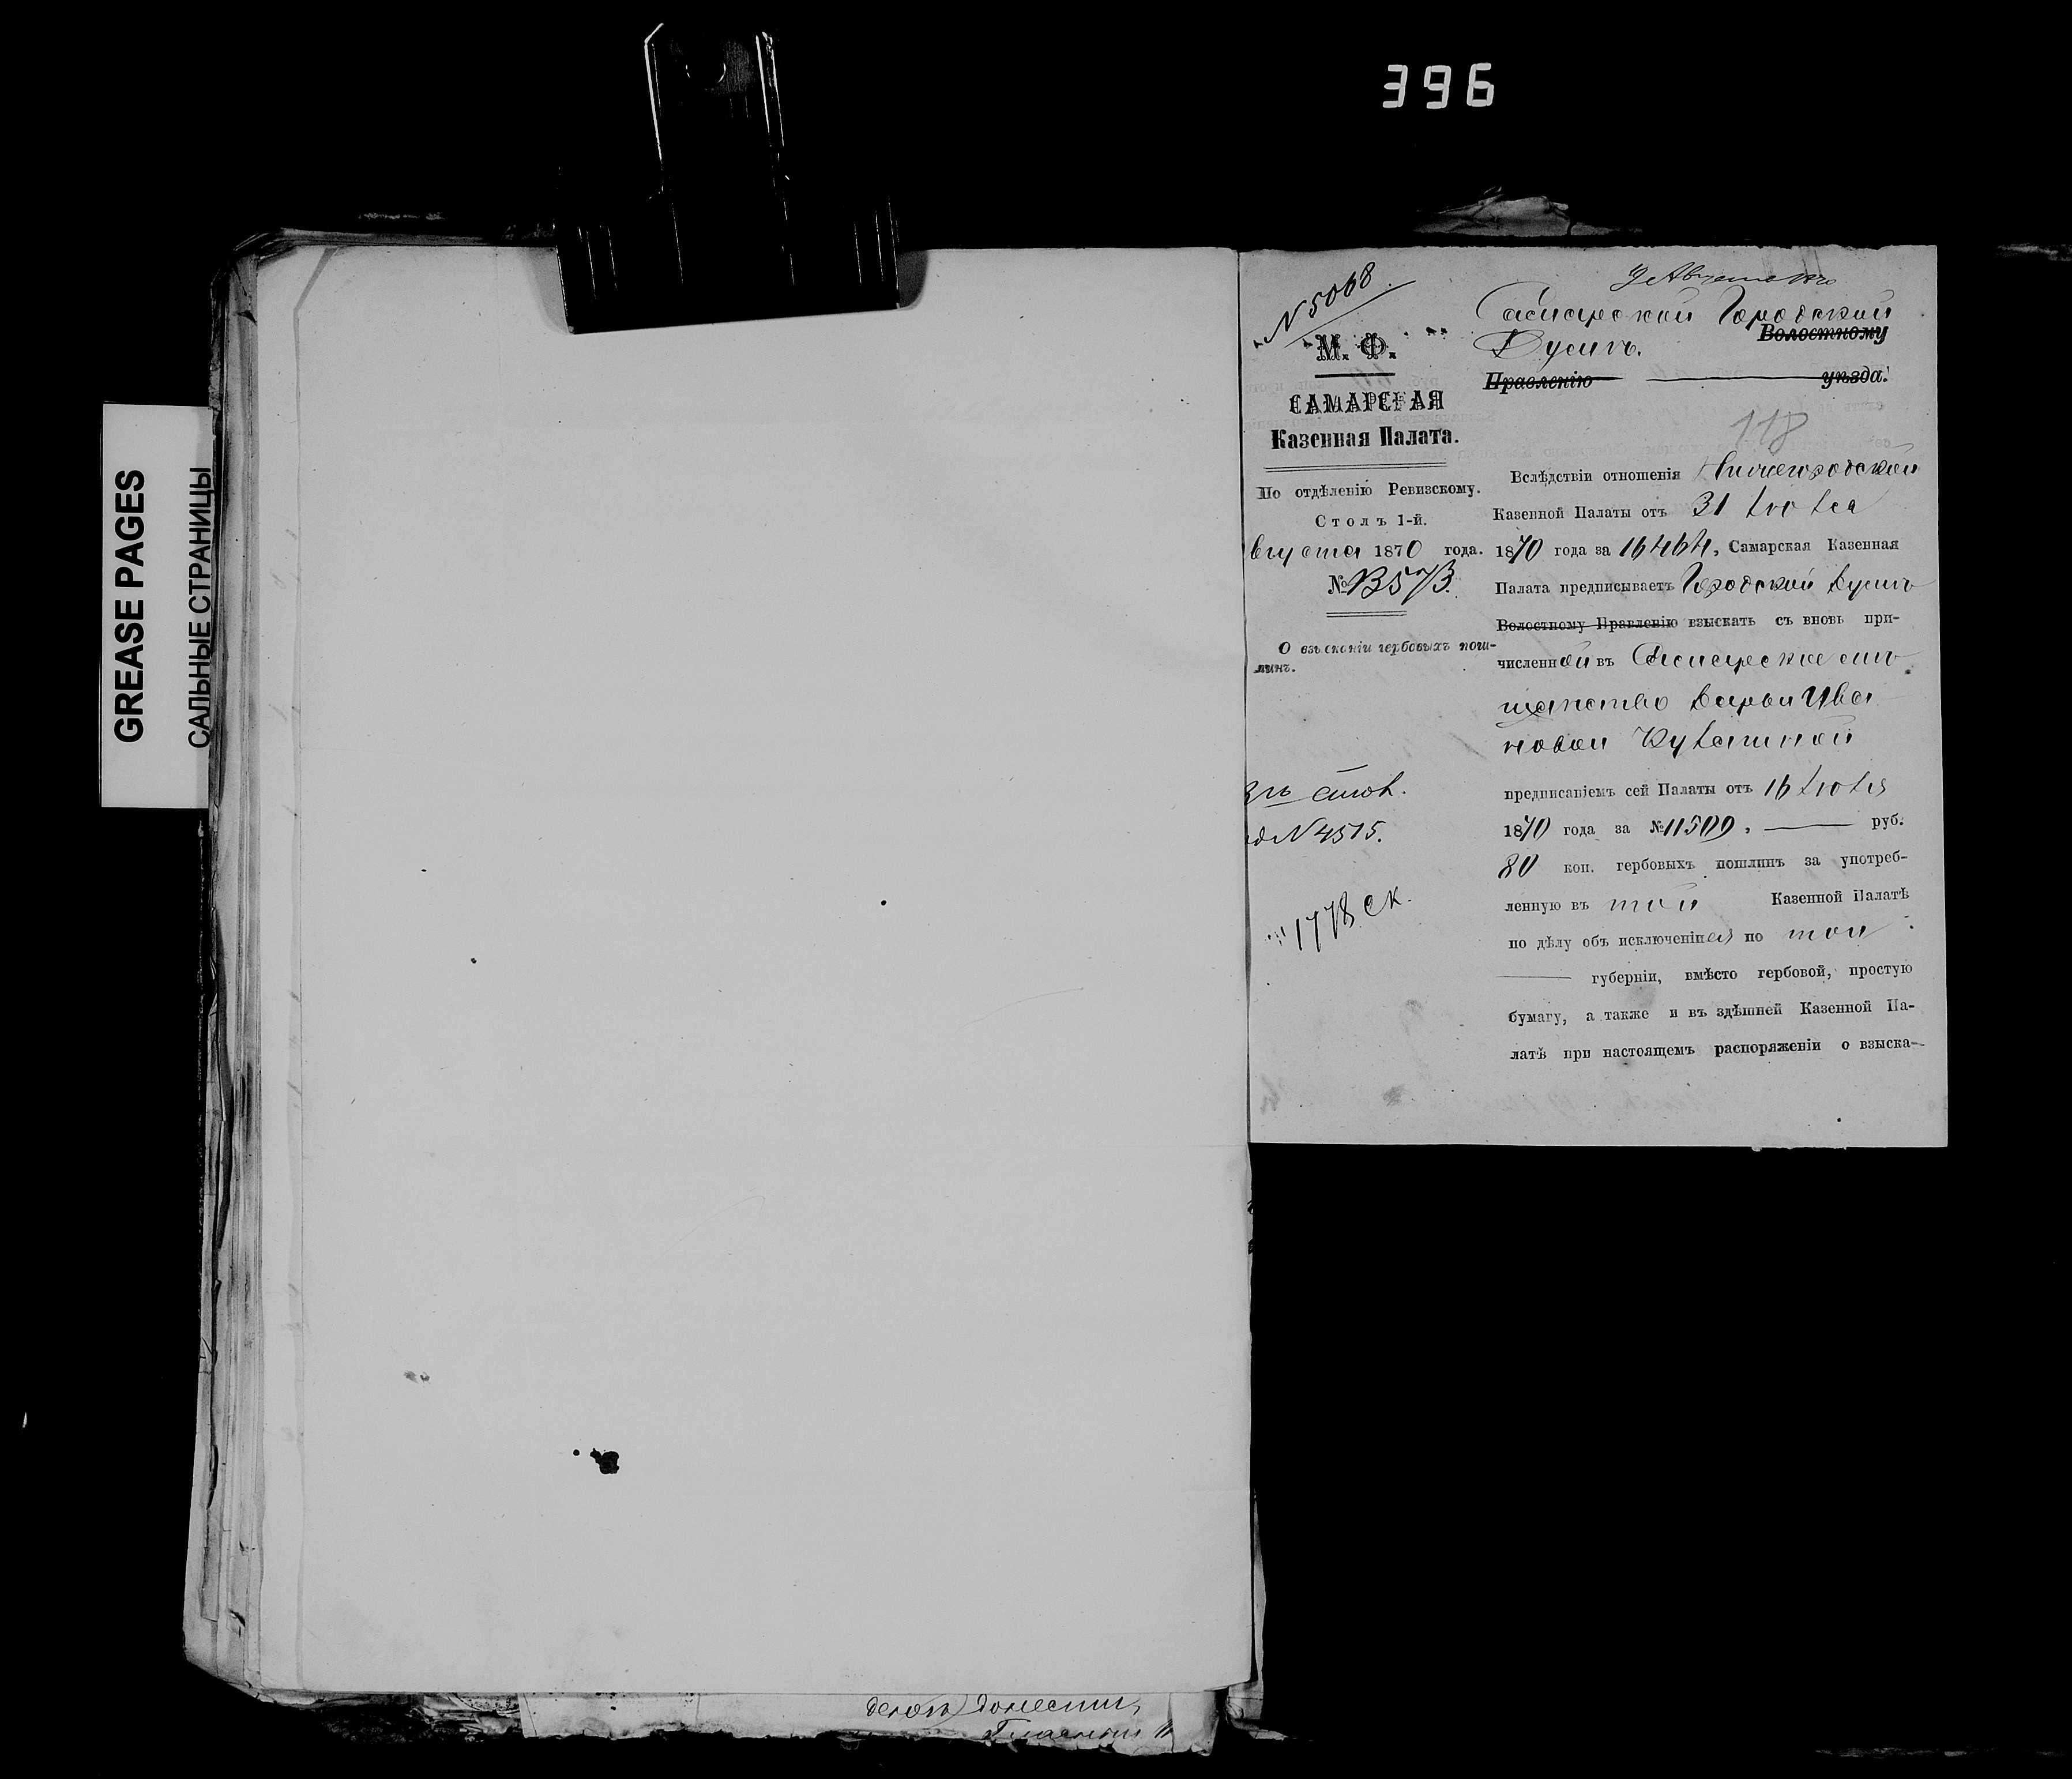 396
GREASE PAGES
САЛЬНЫЕ СТРАНИЦЫ
N 5068.
М. Ф.
САМАРСКАЯ
Казенная Палата.
По отдѣленію Ревизскому.
Столъ 1-й.
вгуста 1870 года.
№ 13573.
О взысканіи гербовыхъ пош-
линъ.
стол.
N 4515.
1778
9 Августа
Самарской Городской
Думѣ.
Волостному
Правленію уѣзда.
118
Вслѣдствіи отношенія Нижегородской
Казенной Палаты отъ 31 Іюля
1870 года за 16464, Самарская Казенная
Палата предписываетъ Городской Думѣ
Волостному Правленію взыскать съ вновь при-
численной въ Самарское мѣ
щанство Дарьи Ива
новой
предписаніемъ сей Палаты отъ 16 Іюля
1870 года за № 11509, руб.
80 коп. гербовыхъ пошлинъ за употреб-
ленную въ той Казенной Палатѣ
по дѣлу объ исключеніи ея по той
губерніи, вмѣсто гербовой, простую
бумагу, а также и въ здѣшней Казенной Па-
латѣ при настоящемъ распоряженіи о взыска-
донести,